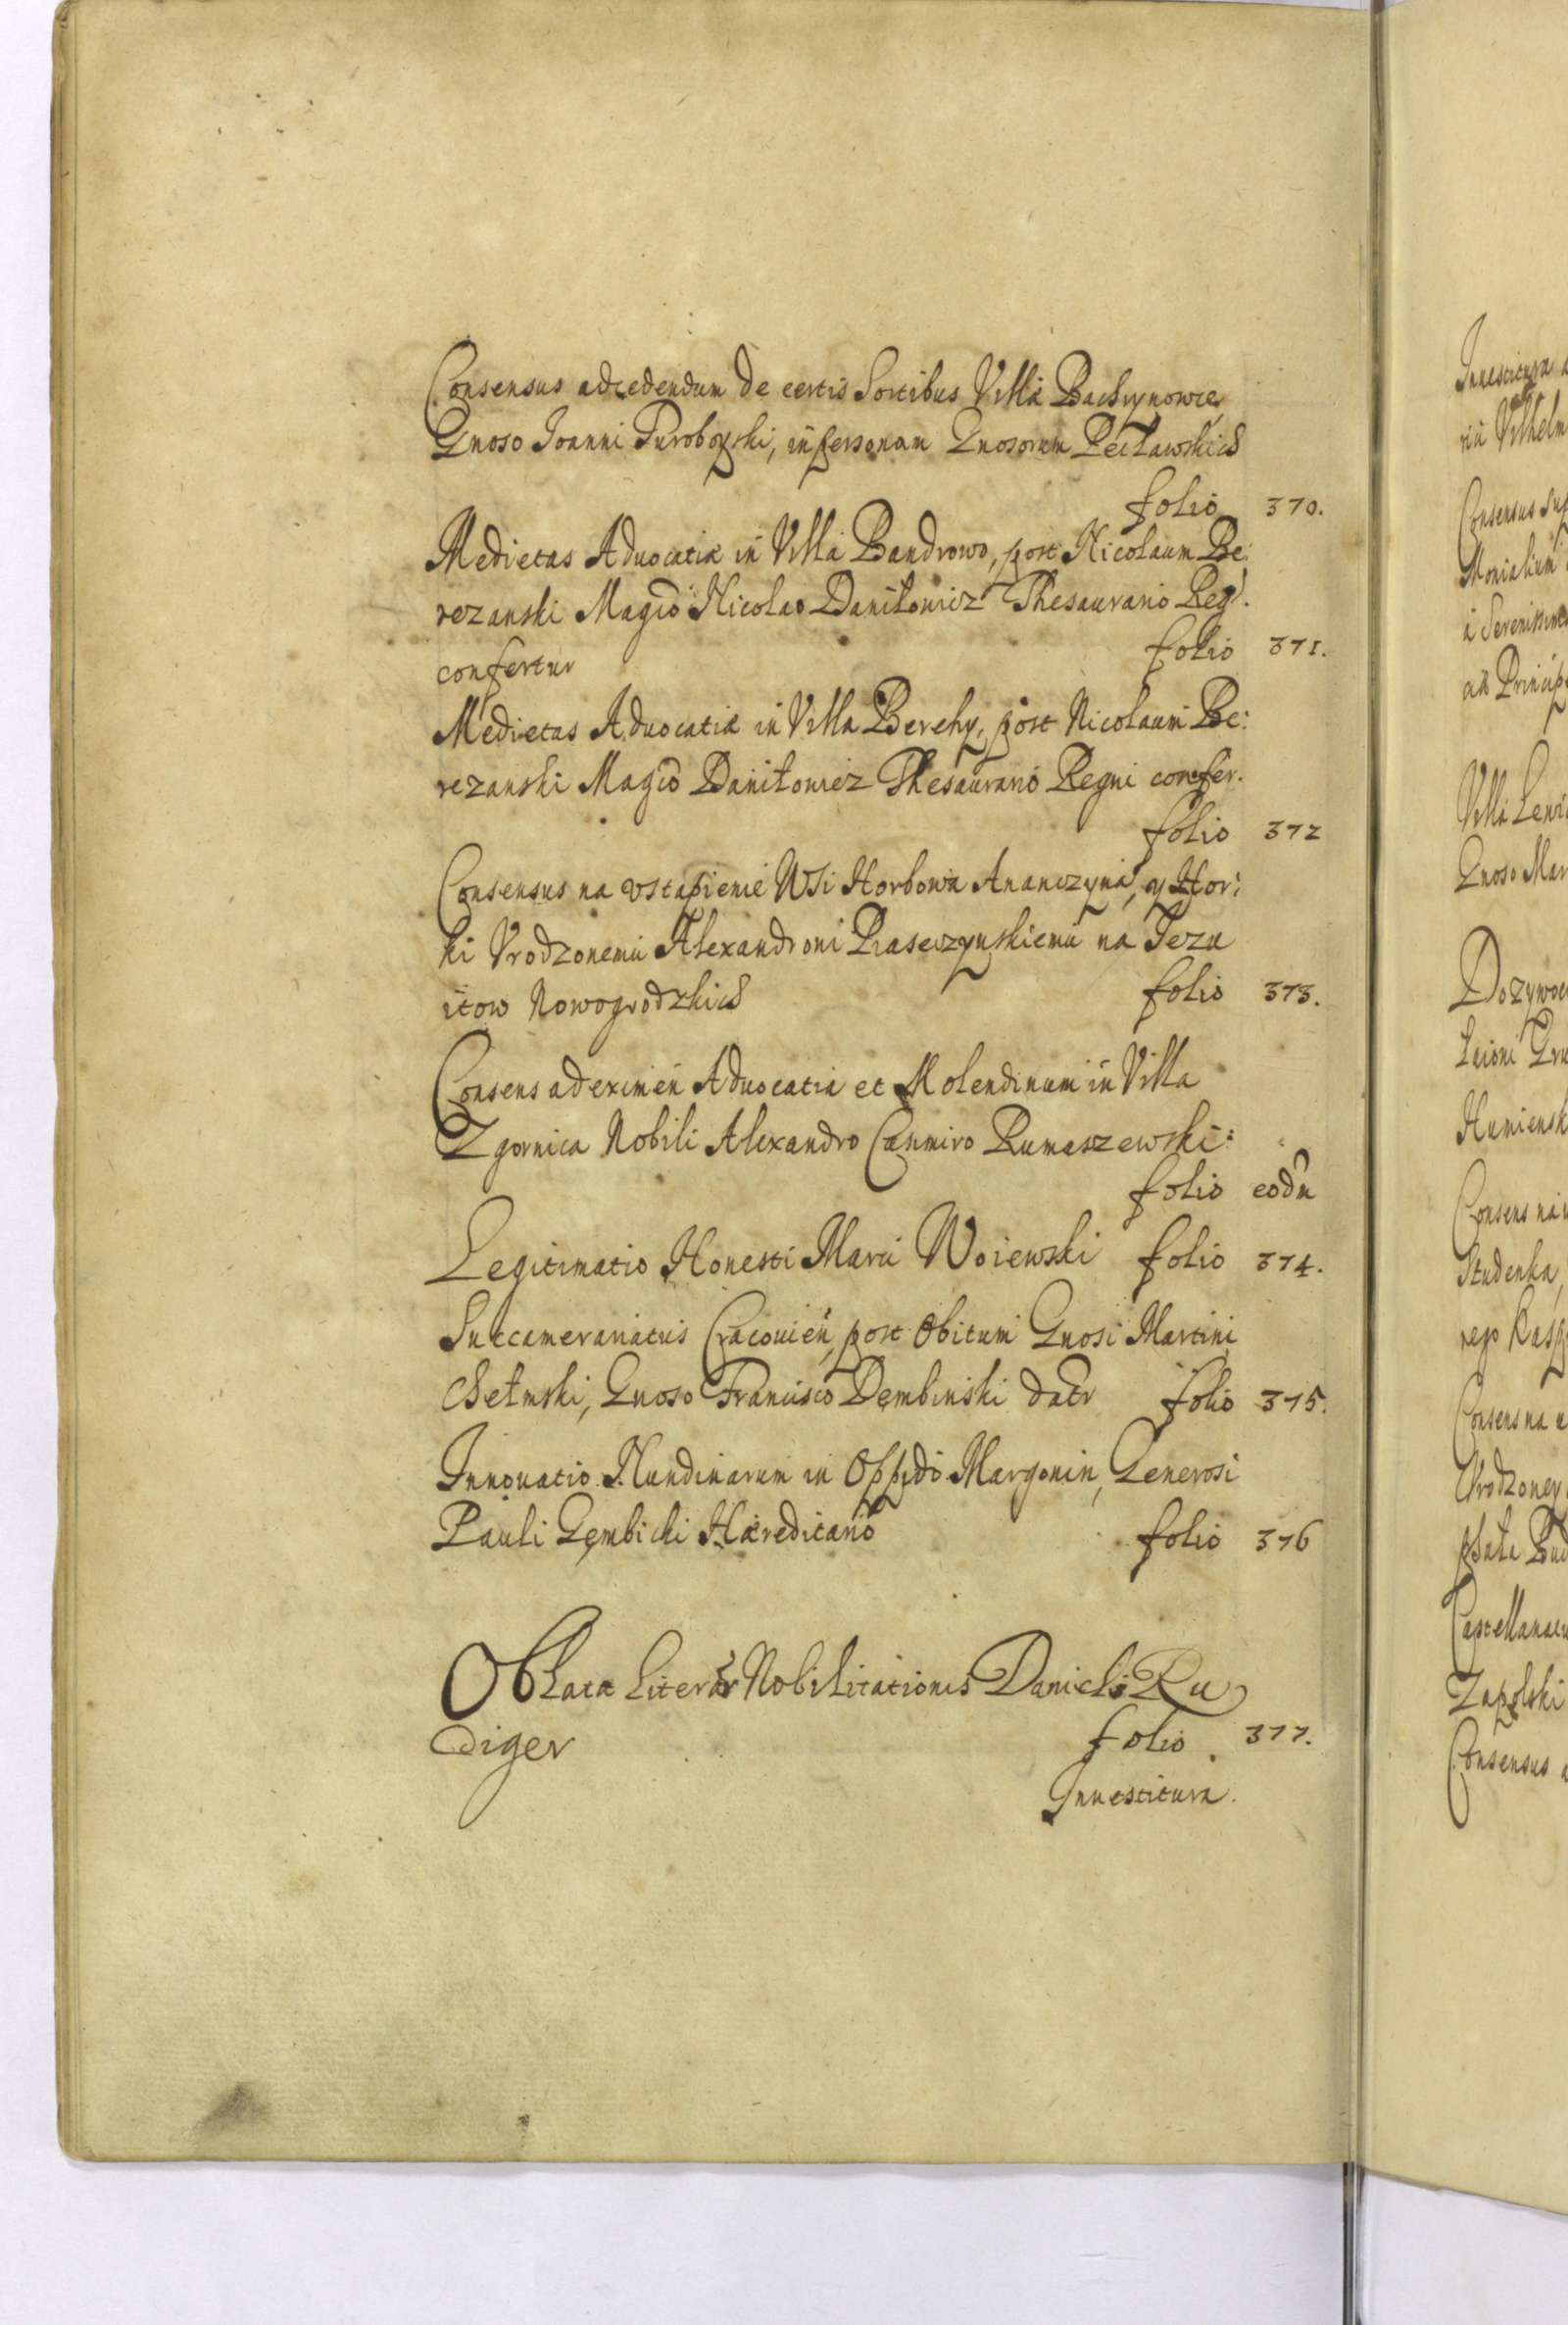 Consensus ad cedendum de certis Sortibus Villæ Bachrynowce,
Gnoso Ioanni Turoboyski, in personam Gnosorum Pecławskich
folio 370.
Medietas Aduocatiæ in Villa Bandrowo, post Nicolaum Be:
rezanski Magco Nicolao Daniłowicz Thesaurario Regl.
confertur folio 371.
Medietas Aduocatiæ in Villa Berehy, post Nicolaum Be:
rezanski Magco Daniłowicz Thesaurario Regni confer.
folio 372
Consensus na vstąpienie Wsi Horbowa Ananczyna, y Hor:
ki Vrodzonemu Alexandroni Piaseczynskiemu na Iezu
itow Nowogrodzkich folio 373.
Consens ad eximen Aduocatia et Molendinum in Villa
Zgornica Nobili Alexandro Casimiro Rumaszewski:
folio eodn
Legitimatio Honesti Marci Woiewski folio 374.
Succamerariatus Cracouień, post Obitum Gnosi Martini
Chełmski, Gnoso Francisco Dembinski datr folio 375.
Innouatio Nundinarum in Oppido Margonin, Generosi
Pauli Gembicki Hæreditario folio 376
Oblata Literar Nobilitationis Danieli Ru
diger folio 377.
Inuestitura.
Inuestitura
Vilhelm
Consensus
Monialium
a Serenissima
Villa
Gnoso
Consens na
Studenka,
Consens na
Zapolski
Consensus